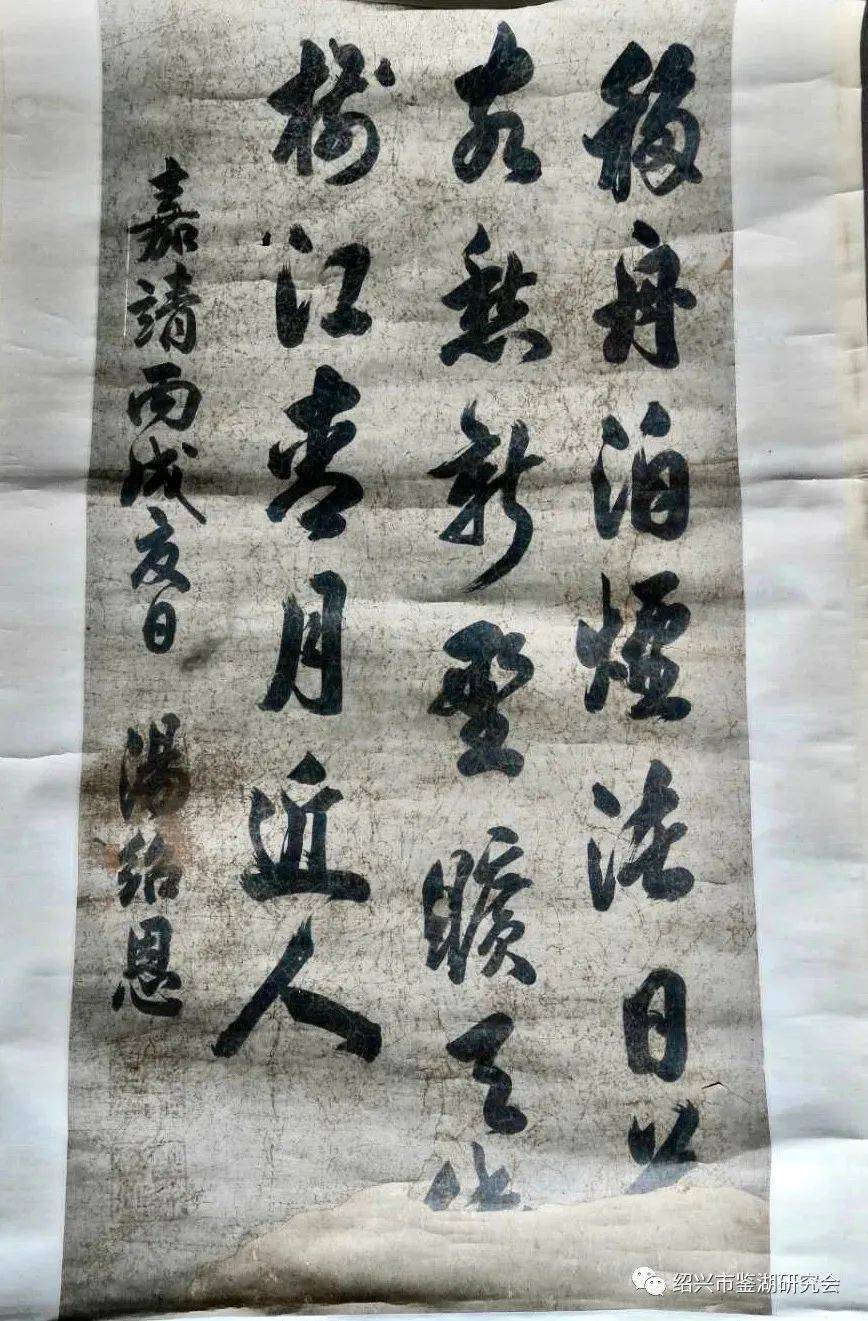 移舟泊煙渚日
客愁新野曠天低
樹江清月近人
嘉靖丙戌夏日 湯紹恩
绍兴市鉴湖研究会